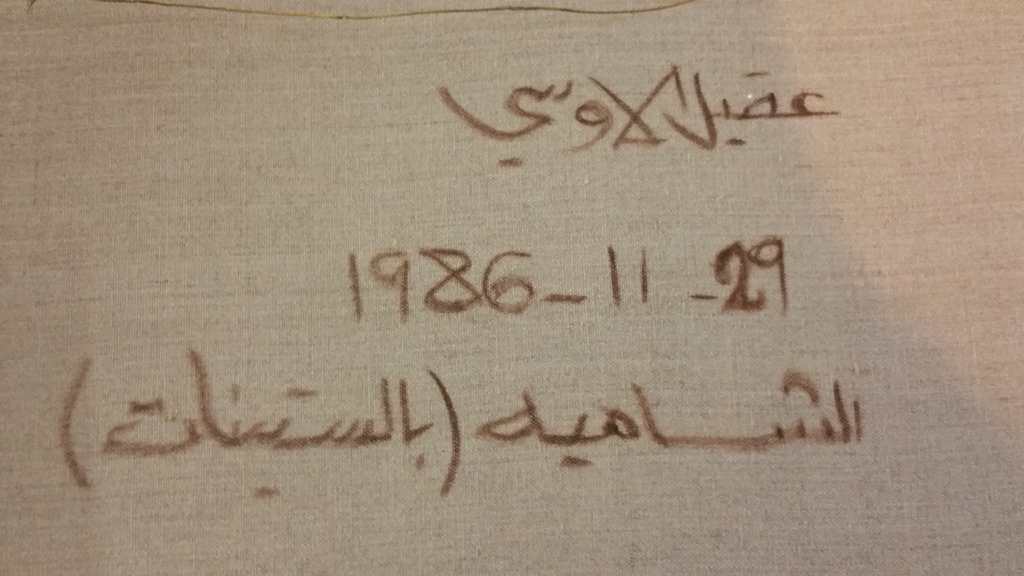 عقيل الاوسي
29-11-1986
الشاميه (بالستينات)